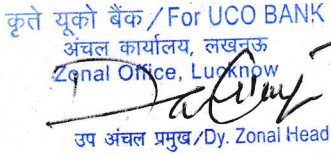 कृते यूको बैंक / For UCO BANK
अंचल कार्यालय, लखनऊ
Zonal Office, Lucknow
उप अंचल प्रमुख/Dy. Zonal Head